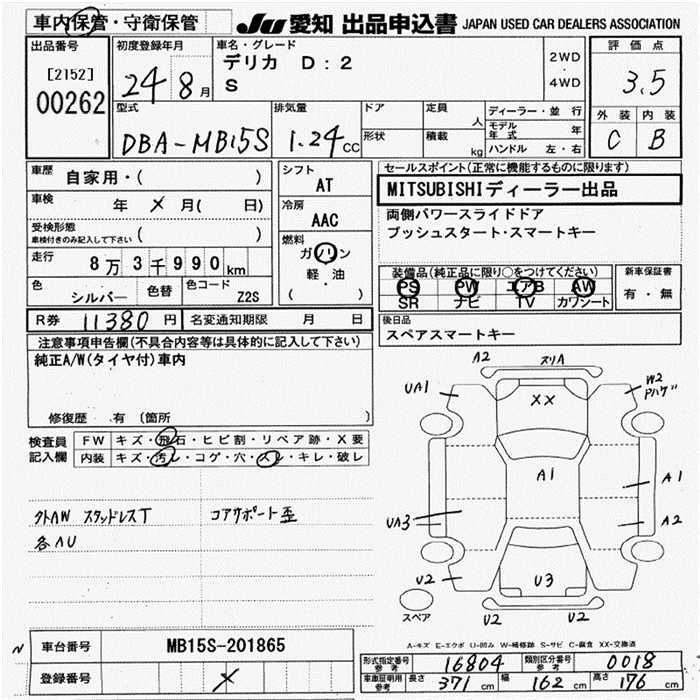 車内保管・守衛保管
JU 愛知 出品申込書 JAPAN USED CAR DEALERS ASSOCIATION
出品番号
[2152]
00262
初度登録年月
24 8月
車名・グレード
デリカ D:2
S
2WD
・
4WD
評価点
3.5
外装 内装
C B
型式
DBA-MB15S
排気量
1.24cc
ドア
形状
定員 人
積載 kg
ディーラー・並行
モデル年式 年
ハンドル 左・右
車歴 自家用・( )
車検 年 メ 月( 日)
受検形態
車検付きのみ記入して下さい ( )
走行 8万3千990km
色 シルバー 色替 色コード Z2S
シフト
AT
冷房
AAC
燃料
ガソリン
軽・油
( )
セールスポイント(正常に機能するものに限ります)
MITSUBISHIディーラー出品
両側パワースライドドア
プッシュスタート・スマートキー
装備品(純正品に限り○をつけてください)
PS PW エアB AW
SR ナビ TV カワシート
新車保証書
有・無
R券 11380円 名変通知期限 月 日
後日品
スペアスマートキー
注意事項申告欄(不具合内容等は具体的に記入して下さい)
純正A/W(タイヤ付)車内
修復歴 有 〔箇所 〕
検査員
記入欄
FW キズ・飛石・ヒビ割・リペア跡・X要
内装 キズ・汚レ・コゲ・穴・スレ・キレ・破レ
外AW スタッドレスT コアサポート歪
各AU
A2 スリA
UA1 XX W2
Pハゲ
A1 A1
UA3 A2
U2 U3
スペア U2 U2
A-キズ E-エクボ U-凹み W-補修跡 S-サビ C-腐食 XX-交換済
車台番号 MB15S-201865
登録番号 メ
形式指定番号参考 16804 類別区分番号参考 0018
車庫証明用参考 長さ 371cm 幅 162cm 高さ 176cm